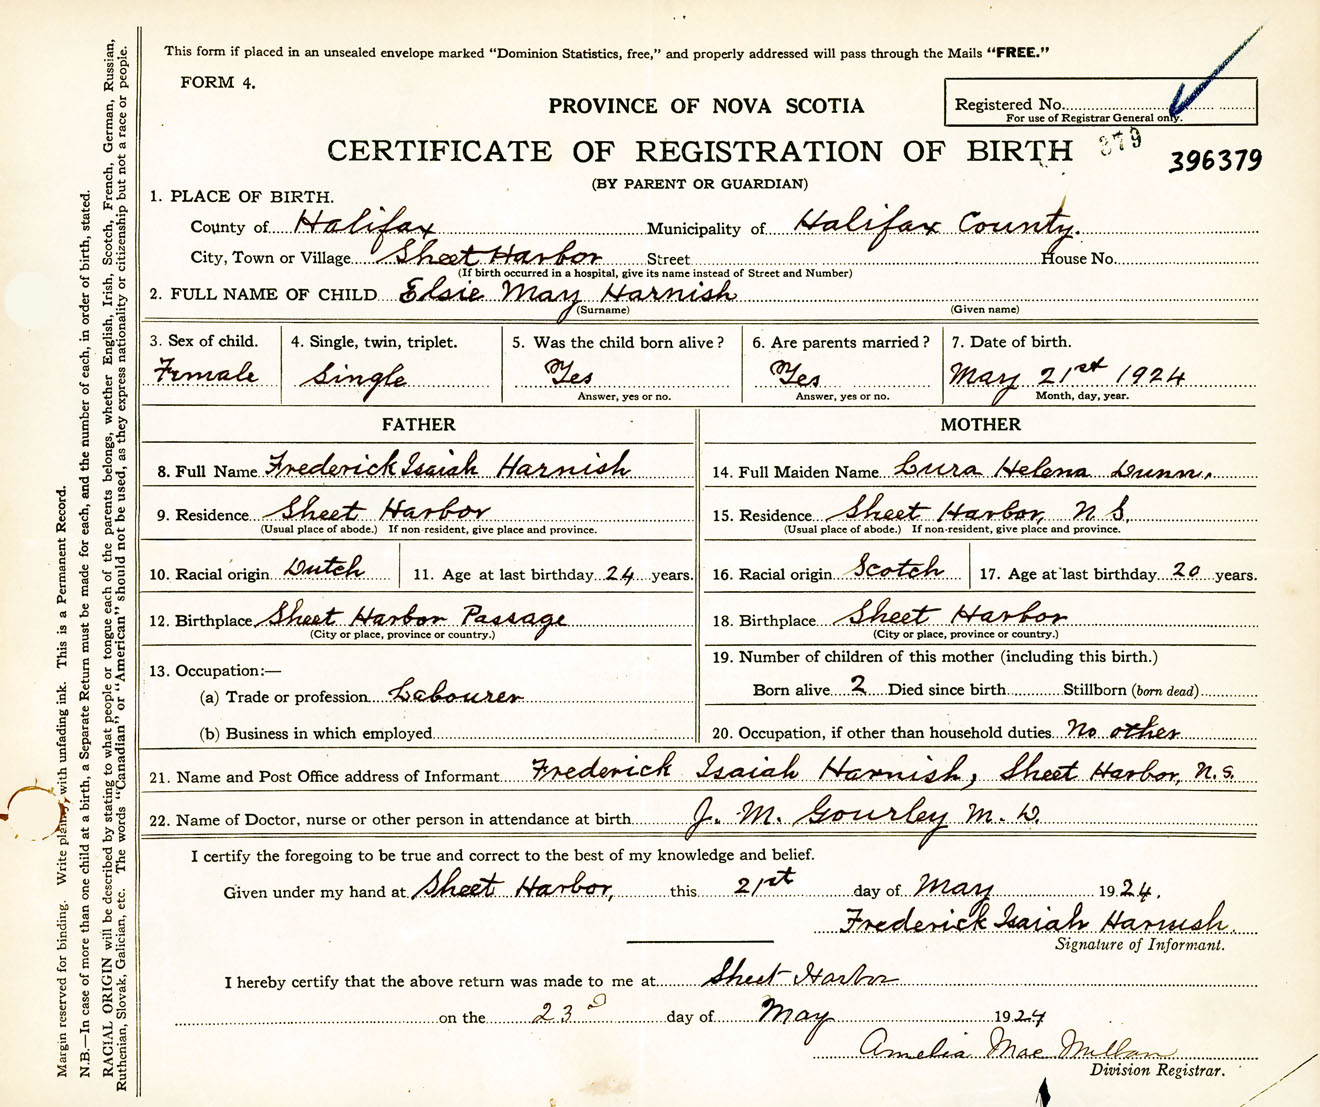 This form if placed in an unsealed envelope marked "Dominion Statistics, free," and properly addressed will pass through the Mails "FREE."
FORM 4.
PROVINCE OF NOVA SCOTIA
Registered No.
For use of Registrar General only.
CERTIFICATE OF REGISTRATION OF BIRTH
379
396379
(BY PARENT OR GUARDIAN)
1. PLACE OF BIRTH.
County of Halifax Municipality of Halifax County.
City, Town or Village Sheet Harbor Street House No.
(If birth occurred in a hospital, give its name instead of Street and Number)
2. FULL NAME OF CHILD Elsie May Harnish
(Surname) (Given name)
3. Sex of child. 4. Single, twin, triplet. 5. Was the child born alive? 6. Are parents married? 7. Date of birth.
Female Single Yes Yes May 21st 1924
Answer, yes or no. Answer, yes or no. Month, day, year.
FATHER
8. Full Name Frederick Isaiah Harnish
9. Residence Sheet Harbor
(Usual place of abode.) If non-resident, give place and province.
10. Racial origin Dutch 11. Age at last birthday 24 years.
12. Birthplace Sheet Harbor Passage
(City or place, province or country.)
13. Occupation:—
(a) Trade or profession Labourer
(b) Business in which employed
MOTHER
14. Full Maiden Name Lura Helena Dunn.
15. Residence Sheet Harbor, N S.
(Usual place of abode.) If non-resident, give place and province.
16. Racial origin Scotch 17. Age at last birthday 20 years.
18. Birthplace Sheet Harbor
(City or place, province or country.)
19. Number of children of this mother (including this birth.)
Born alive 2 Died since birth Stillborn (born dead)
20. Occupation, if other than household duties No other
21. Name and Post Office address of Informant Frederick Isaiah Harnish, Sheet Harbor, N.S.
22. Name of Doctor, nurse or other person in attendance at birth J. M. Gourley M. D.
I certify the foregoing to be true and correct to the best of my knowledge and belief.
Given under my hand at Sheet Harbor, this 21st day of May 1924.
Frederick Isaiah Harnish.
Signature of Informant.
I hereby certify that the above return was made to me at Sheet Harbor
on the 23d day of May 1924
Amelia MacMillan
Division Registrar.
Margin reserved for binding. Write plainly, with unfading ink. This is a Permanent Record.
N.B.—In case of more than one child at a birth, a Separate Return must be made for each, and the number of each, in order of birth, stated.
RACIAL ORIGIN will be described by stating to what people or tongue each of the parents belongs, whether English, Irish, Scotch, French, German, Russian,
Ruthenian, Slovak, Galician, etc. The words "Canadian" or "American" should not be used, as they express nationality or citizenship but not a race or people.